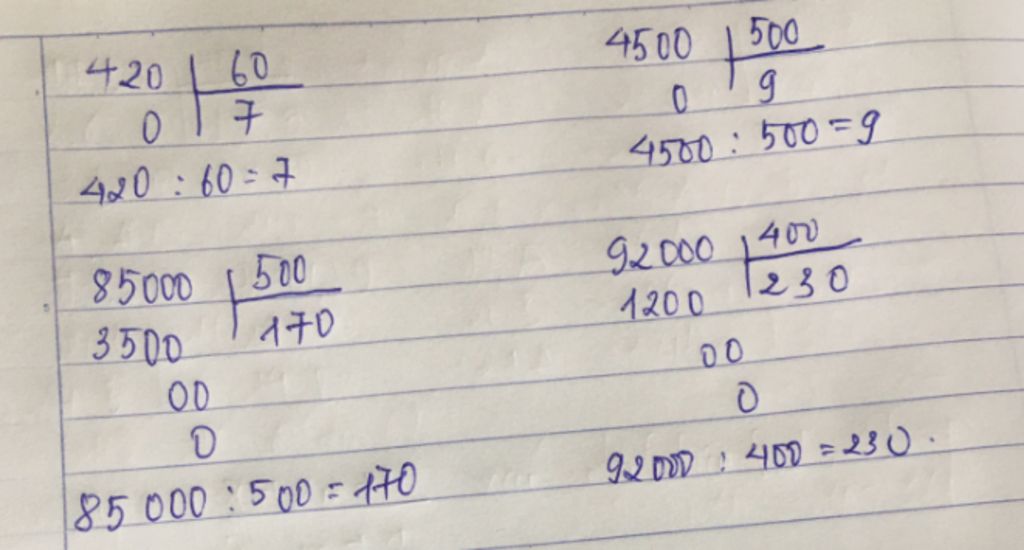 420 60
0 7
420 : 60 = 7
4500 500
0 9
4500 : 500 = 9
85000 500
3500 170
00
0
85 000 : 500 = 170
92000 400
1200 230
00
0
92000 : 400 = 230.